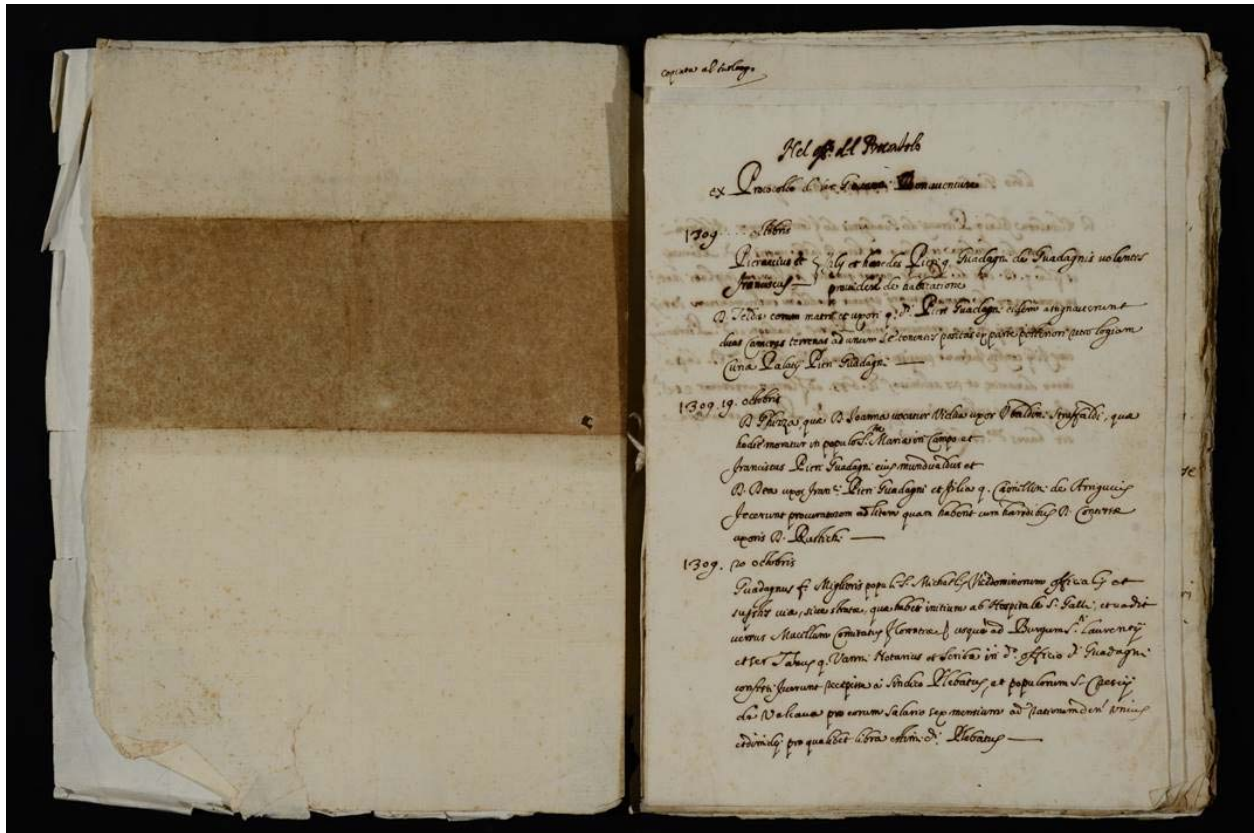 copiata al suo luogo
Nel del
ex Protocollo d. ser Bonaventure
1309 octobris
Pieruccius et } filij et haeredes Pieri q. Guadagni de Guadagnis volentes
Franciscus — } providere de habitatione
D. Telda eorum matri et uxori q. d.i Pieri Guadagni eidem assignaverunt
duas cameras terrenas ad unum se tenentes positas ex parte posteriori retro logiam
Palatij Pieri Guadagni —
1309. 19. octobris
D. Ghizza, quae D. Joanna vocatur Vidua uxor Ubaldini Straffaldi, quae
hodie moratur in populo S.tae Mariae in Campo et
Franciscus Pieri Guadagni eius mundualdus et
D. Bea uxor Fran.ci Pieri Guadagni et filia q. de Arrigucijs
fecerunt procuratorem ad litem quam habent cum haeredibus D.
uxoris D. —
1309. 20 octobris
Guadagnus f. Miglioris pop.li S. Michaelis Vicedominorum officialis et
viae, sive stratae, quae habet initium ab Hospitale S. Galli, et vadit
versus Comitatus Florentiae usque ad Burgum S. Laurentij
et ser q. Vanni Notarius et scriba in d.o officio d.i Guadagni
confessi fuerunt recepisse a sindico Plebatus, et populorum S.
de pro eorum salario sex mensium ad rationem den. unius
et dimidij pro qualibet libra extimi d.i Plebatus —